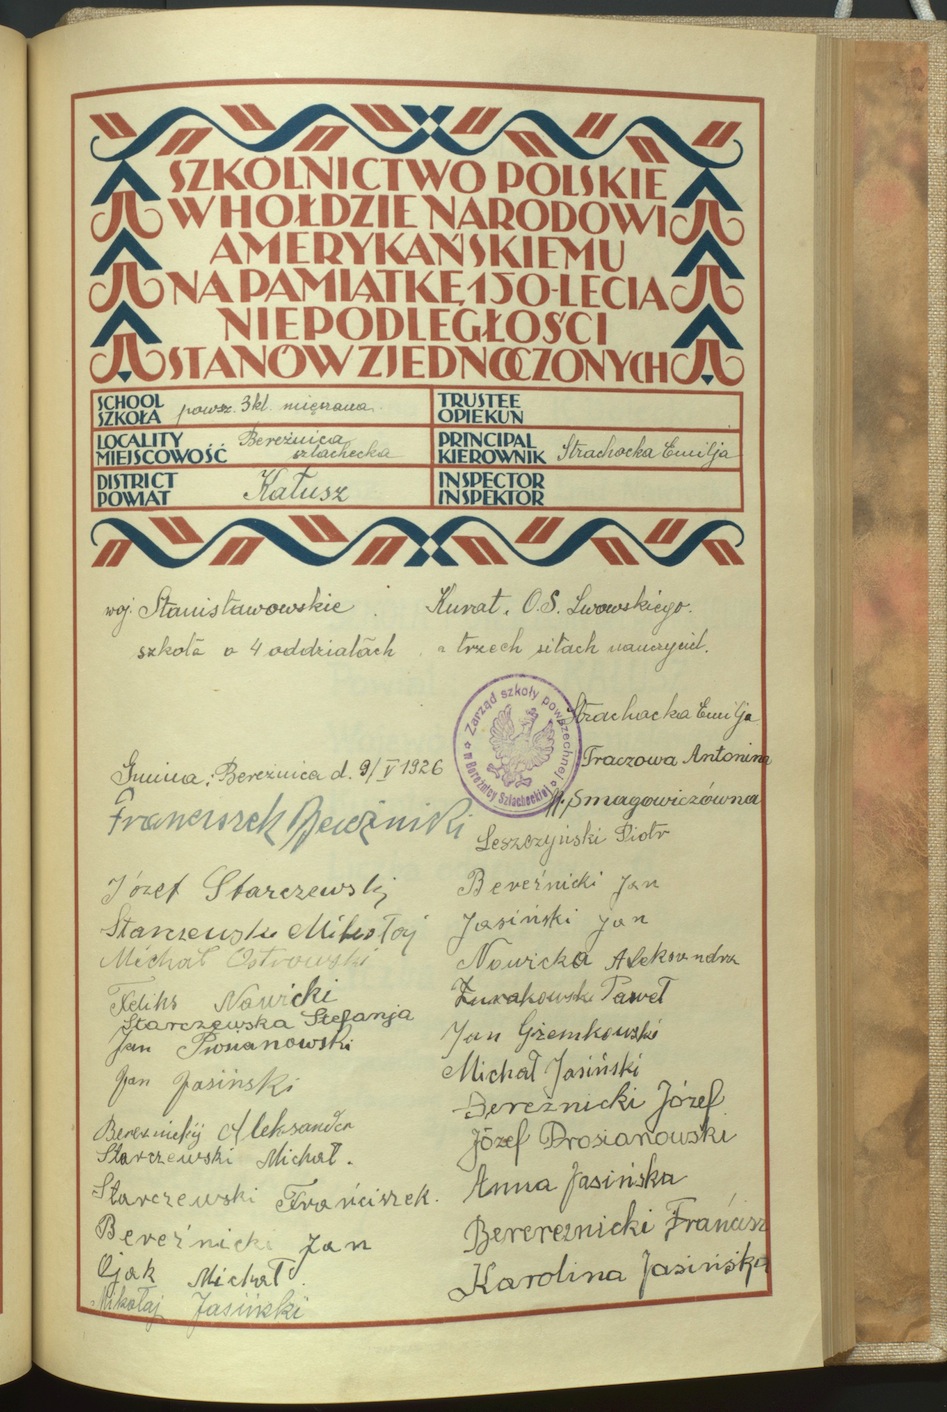 SZKOLNICTWO POLSKIE
W HOŁDZIE NARODOWI
AMERYKAŃSKIEMU
NA PAMIĄTKĘ 150-LECIA
NIEPODLEGŁOŚCI
STANÓW ZJEDNOCZONYCH
SCHOOL
SZKOŁA powsz. 3kl. mięszana
TRUSTEE
OPIEKUN
LOCALITY
MIEJSCOWOŚĆ Bereźnica szlachecka
PRINCIPAL
KIEROWNIK Strachocka Emilja
DISTRICT
POWIAT Kałusz
INSPECTOR
INSPEKTOR
woj. Stanisławowskie Kurat. O.S. Lwowskiego.
szkoła o 4 oddziałach o trzech siłach nauczyciel.
Zarząd szkoły powszechnej
w Bereźnicy Szlacheckiej
Strachocka Emilja
Traczowa Antonina
Smagowiczówna
Gmina: Bereźnica d. 9/V 1926
Franciszek Bereźnicki
Leszczyński Piotr
Józef Starczewski
Starzewski Mikołaj
Michał Ostrowski
Feliks Nowicki
Starczewska Stefanja
Jan
Jan Jasiński
Bereznickij Aleksander
Starczewski Michał.
Starczewski Frańciszek.
Bereźnicki Jan
Ojak Michał.
Mikołaj Jasiński
Bereźnicki Jan
Jasiński Jan
Nowicka Aleksandra
Żurakowski Paweł
Jan Grzemkowski
Michał Jasiński
Bereźnicki Józef
Józef Prosianowski
Anna Jasińska
Berereznicki Frańcisz
Karolina Jasińska